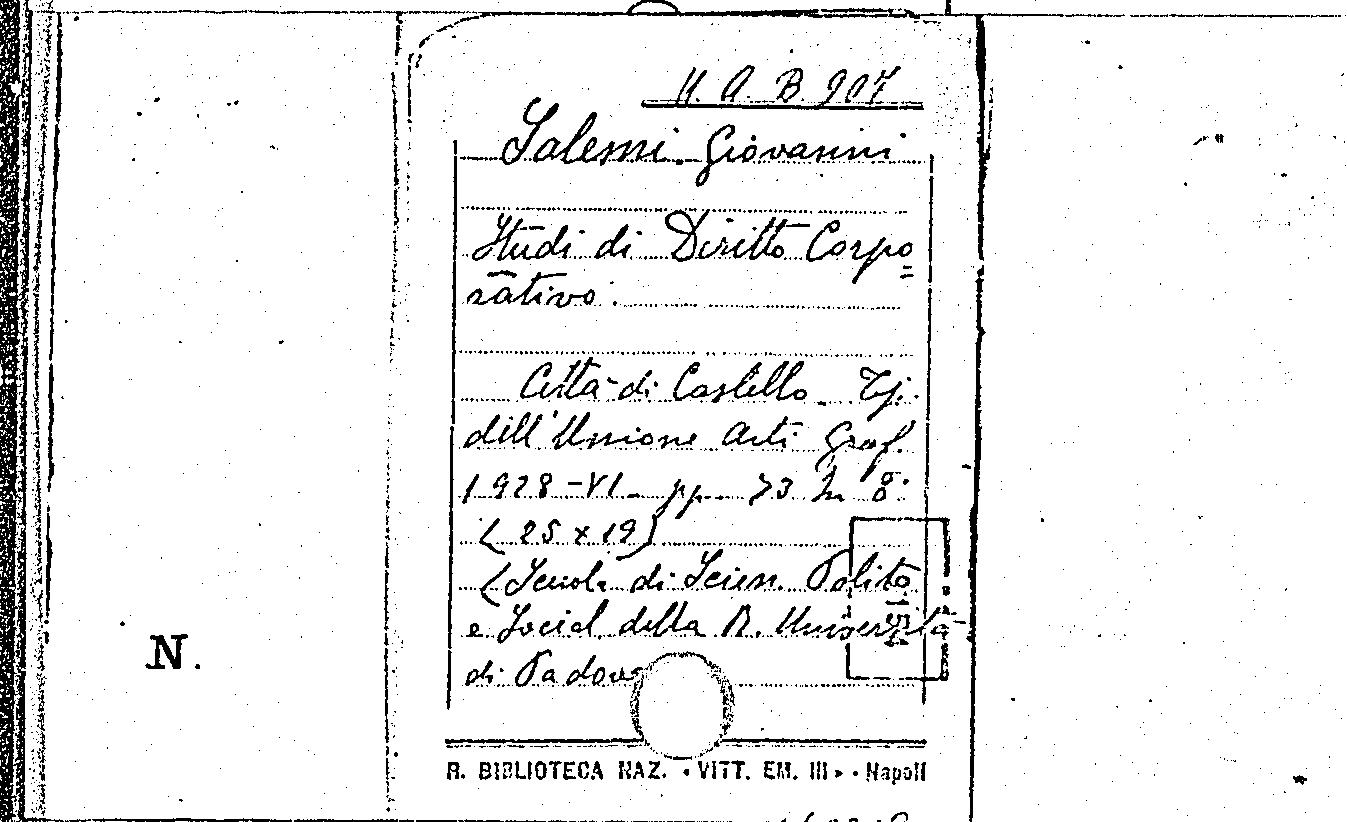 H. A. B. 907
Salemi. Giovanni
Studi di Diritto Corpo=
rativo.
Città di Castello. Tip.
dell'Unione Arti Graf.
1928-VI. pp. 73 In 8.
(25 x 19)
(Scuola di Scien. Polit.
e Social della R. Università
di Padova
N.
R. BIBLIOTECA NAZ. «VITT. EM. III» · Napoli